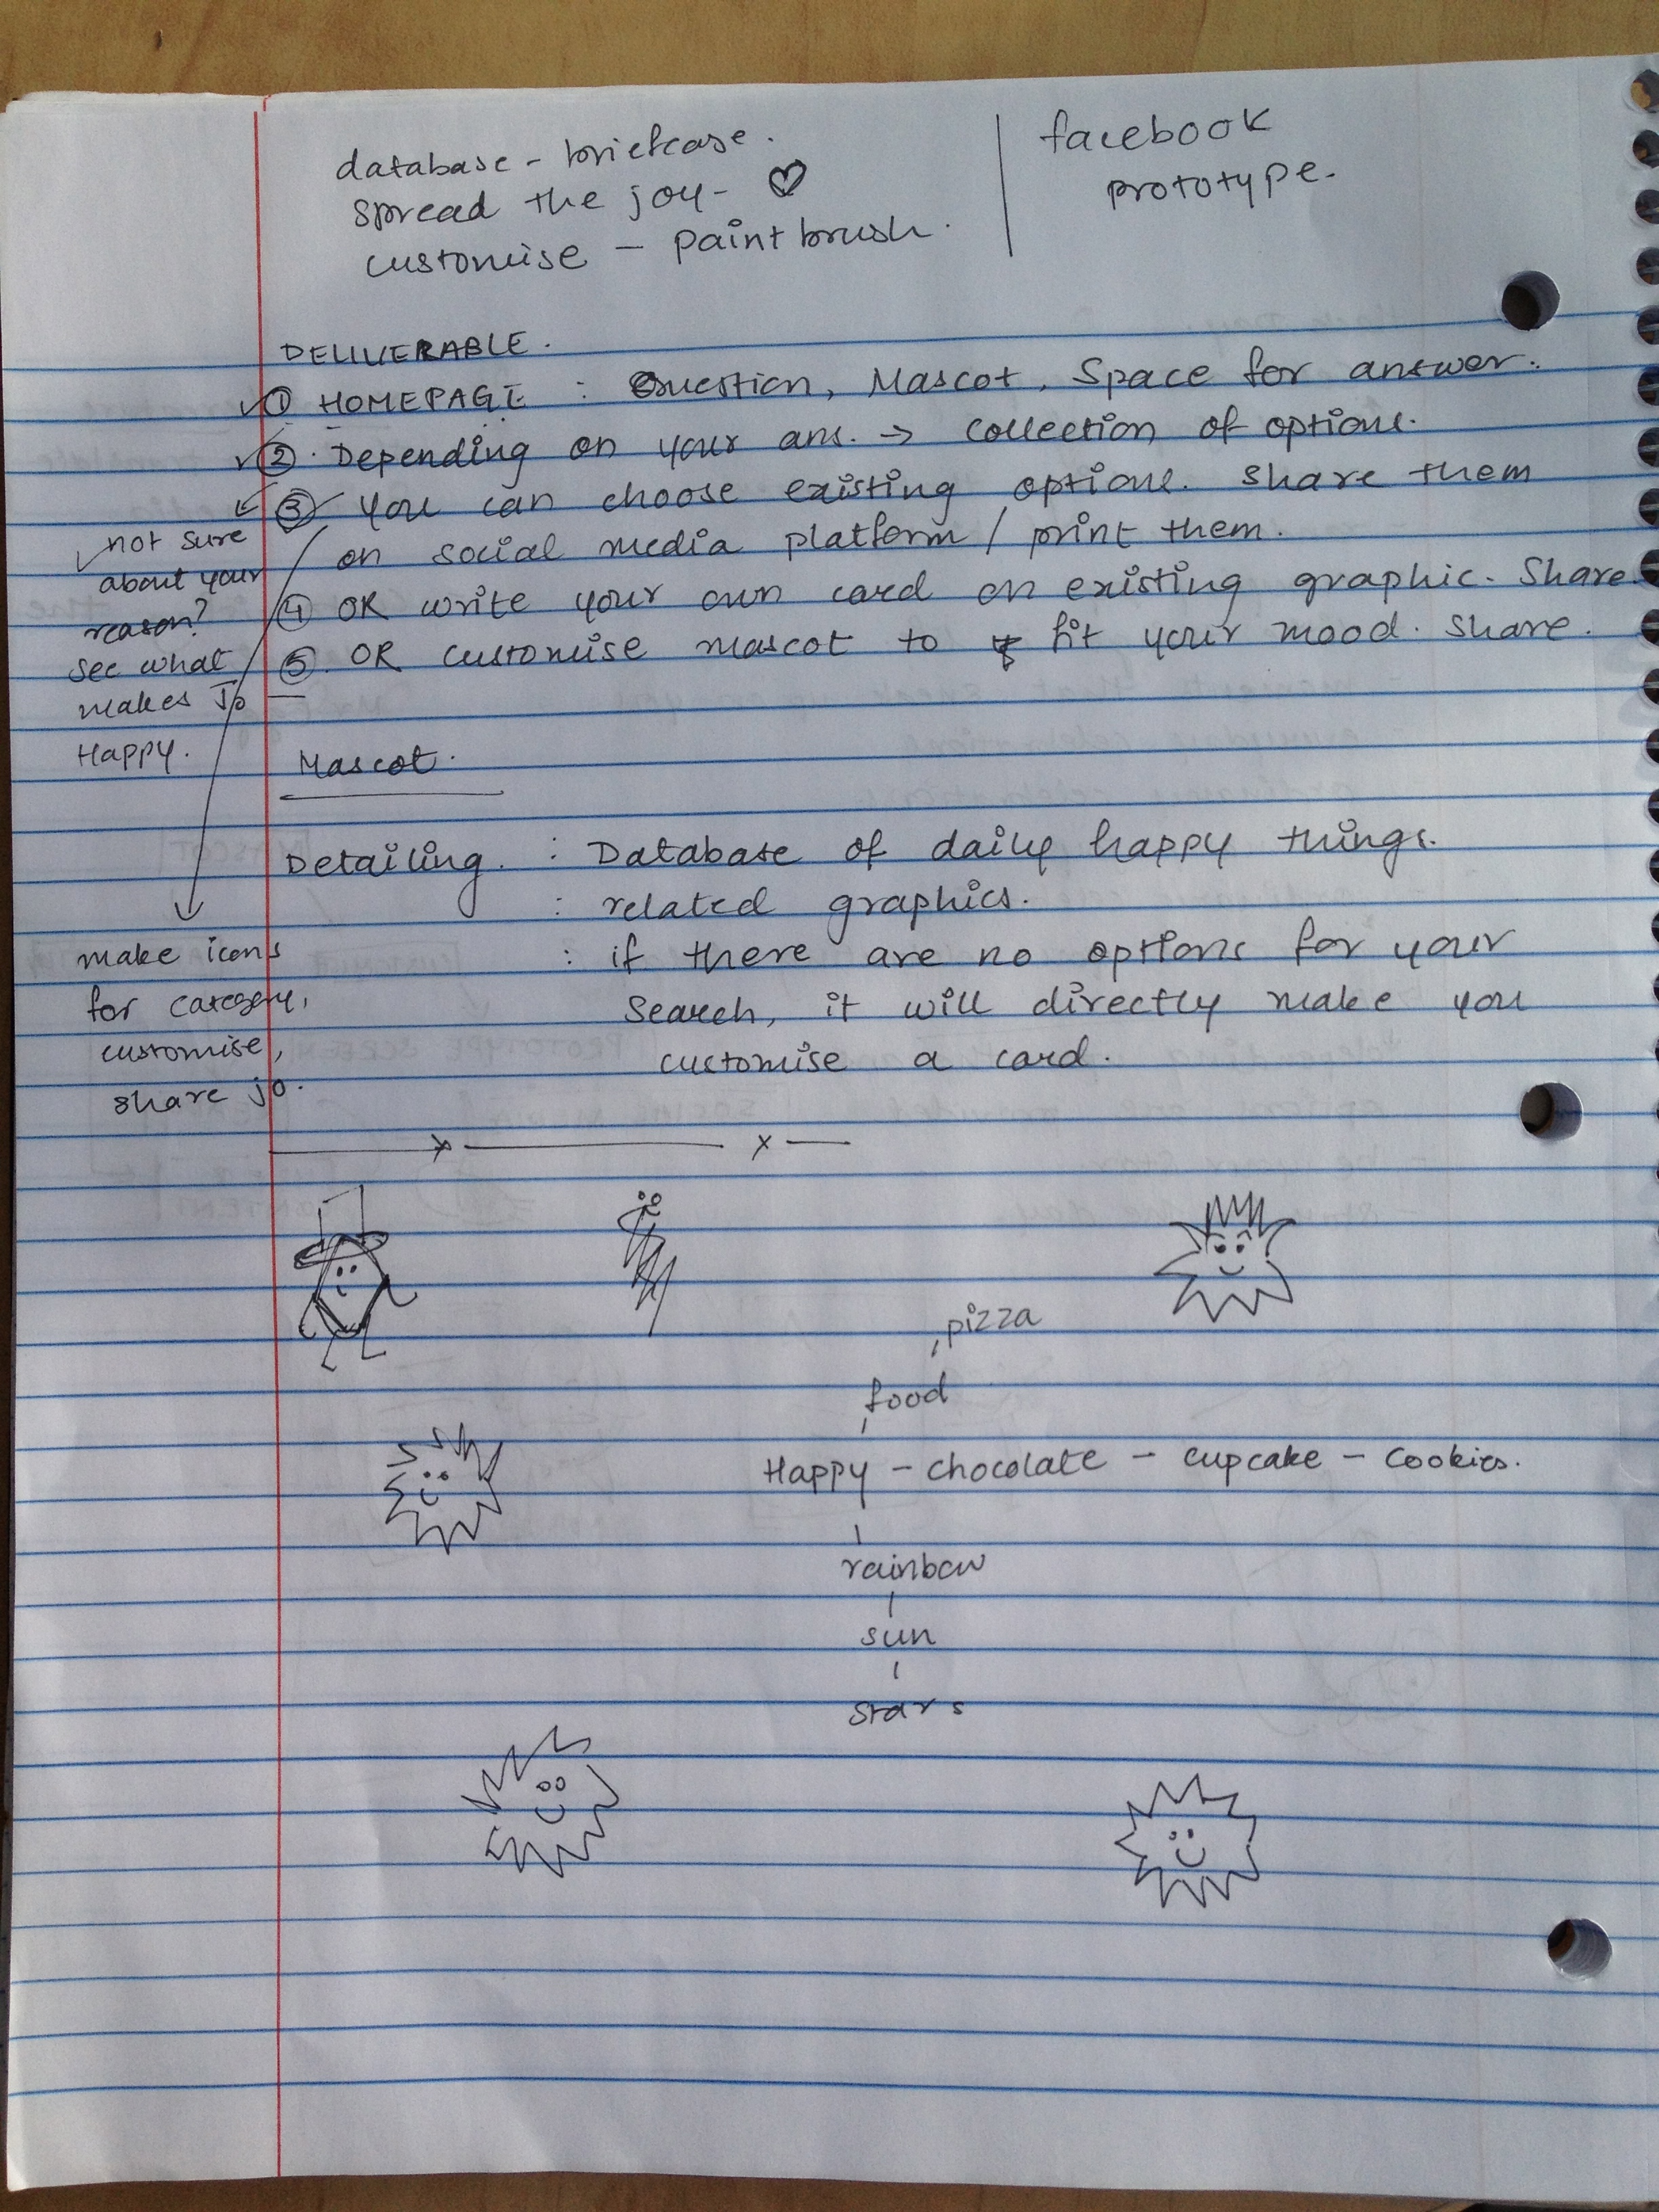 database - briefcase.
spread the joy - ♡
customise - paint brush.
facebook
prototype.
DELIVERABLE.
① HOMEPAGE : Question, Mascot, Space for answer.
②. Depending on your ans. → collection of options.
③ You can choose existing options. Share them
on social media platform / print them.
④ OR write your own card on existing graphic. Share
⑤. OR customise mascot to fit your mood. Share.
not sure
about your
reason?
see what
makes Jo
Happy.
Mascot.
Detailing. : Database of daily happy things.
: related graphics.
: if there are no options for your
search, it will directly make you
customise a card.
make icons
for category,
customise,
share jo.
pizza
food
Happy - chocolate - cupcake - cookies.
rainbow
sun
stars